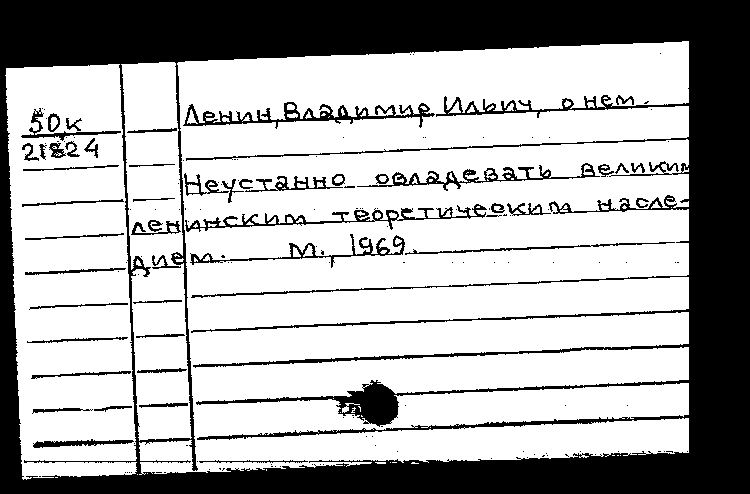 Ленин, Владимир Ильич, о нем.
50к
21824
Неустанно овладевать великим
ленинским теоретическим насле-
дием. М., 1969.